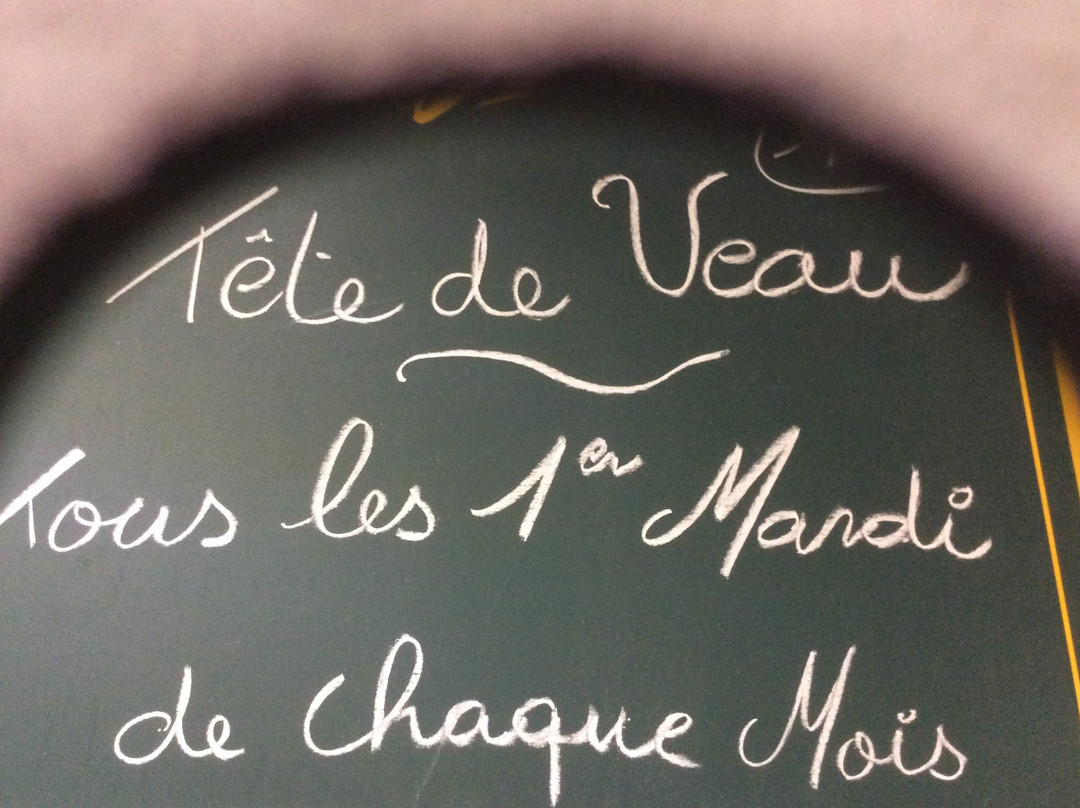 Tête de Veau
Tous les 1er Mardi
de chaque Mois